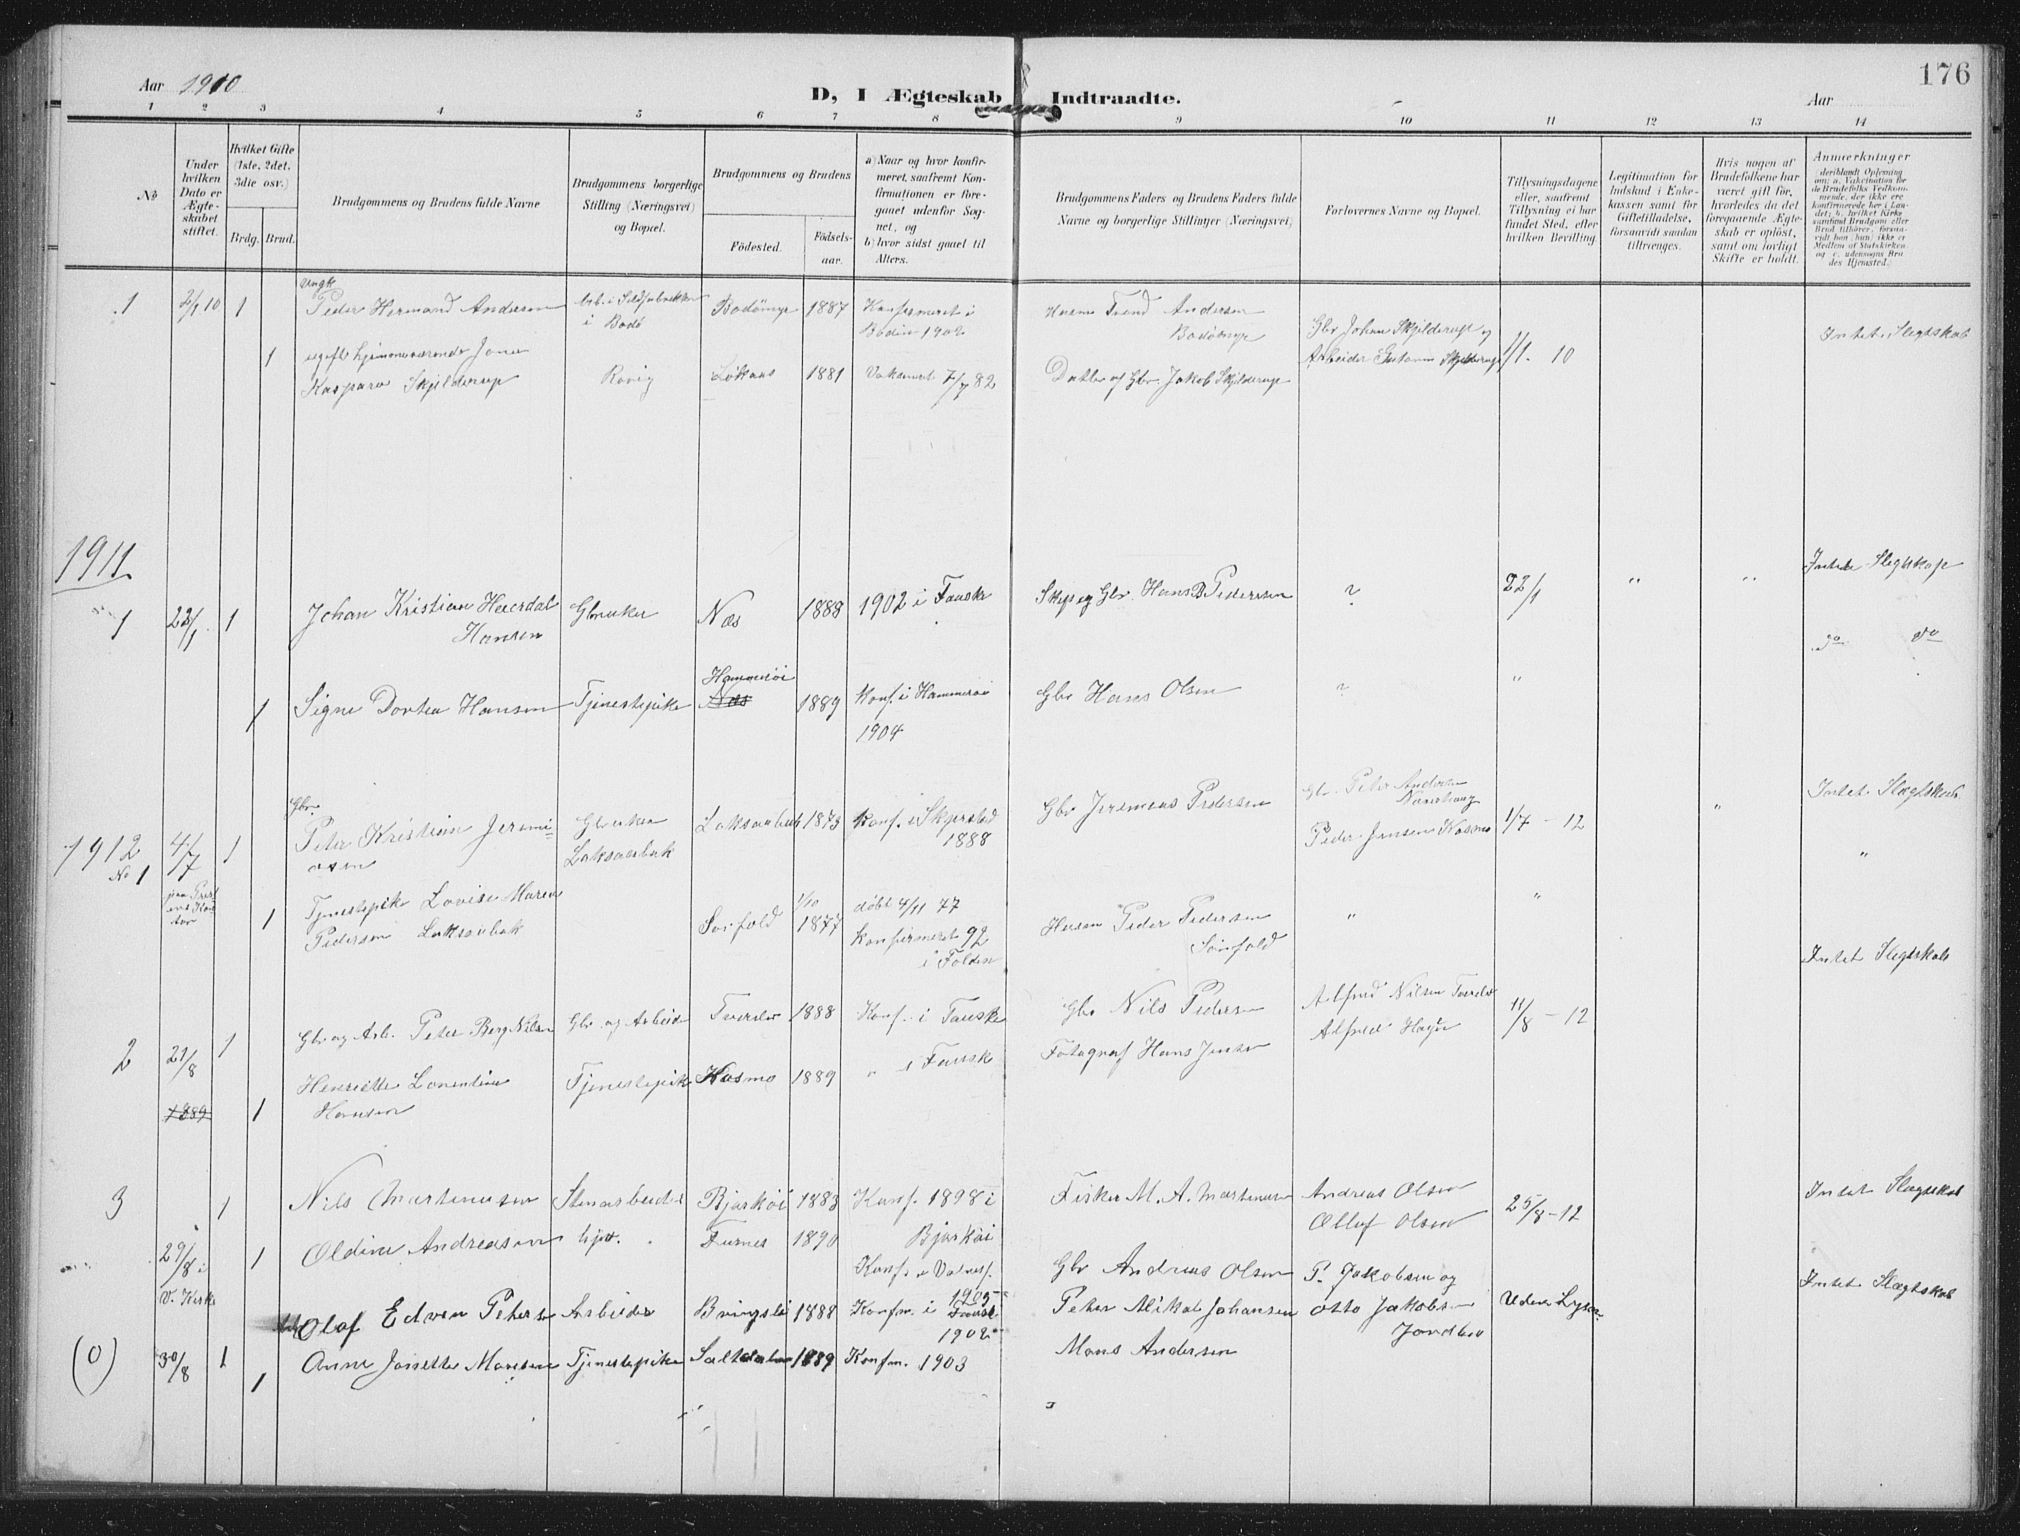 176
Aar 1910
D, I Ægteskab Indtraadte.
Aar
1 2 3 4 5 6 7 8 9 10 11 12 13 14
No
Under hvilken Dato er Ægteskabet stiftet.
Hvilket Gifte (1ste, 2det, 3die osv.)
Brdg. Brud.
Brudgommens og Brudens fulde Navne
Brudgommens borgerlige Stilling (Næringsvei) og Bopæl.
Brudgommens og Brudens
Födested.
Födselsaar.
a) Naar og hvor konfirmeret, saafremt Konfirmationen er foregaaet udenfor Sognet, og
b) hvor sidst gaaet til Alters.
Brudgommens Faders og Brudens Faders fulde Navne og borgerlige Stillinger (Næringsvei)
Forlovernes Navne og Bopæl.
Tillysningsdagene eller, saafremt Tillysning ei har fundet Sted, efter hvilken Bevilling
Legitimation for Indskud i Enkekassen samt for Giftetilladelse, forsaavidt saadan tiltrænges.
Hvis nogen af Brudefolkene har været gift før, hvorledes da det foregaaende Ægteskab er opløst, samt om lovligt Skifte er holdt.
Anmærkninger
deriblandt Oplysning om: a. Vakcination for de Brudefolks Vedkommende, der ikke ere konfirmerede her i Landet; b. hvilket Kirkesamfund Brudgom eller Brud tilhører, forsaavidt han (hun) ikke er Medlem af Statskirken. og c. udensogns Brudes Hjemsted.
1 2/1 10 1 Ungk Peder Hermand Andersen Arb. i Sildfabrikken i Bodö Bodömyr 1887 Konfirmeret i Bodin 1902 Husm Trond Andersen Bodömyr Gbr Johan Skjilderup og Arbeider Gustavm Skjilderup 1/1. 10 Intet Slegtskab
1 ugift hjemmeværende Jona Kaspara Skjilderup Røvig Løkaas 1881 Vaksineret 7/7 82 Datter af Gbr Jakob Skjilderup
1911
1 22/1 1 Johan Kristian Haerdal Hansen Gbruker Næs 1888 1902 i Fauske Skip og Gbr. Hans Pedersen ? 22/1 " " Intet Slegtskap
do do
1 Signe Dortea Hansen Tjenestepike Hammerøi Næs 1889 Konf. i Hammerøi 1904 Gbr Hans Olsen ? "
1912 No 1 4/7 1 Gbr Peter Kristian Jeremiasen Gbruker Laksaabak Laksaabak 1873 Konf. i Skjerstad 1888 Gbr Jeremias Pedersen Gbr. Peter Andersen Peder Jensen Kosmo 1/7 - 12 " Intet Slægtskab
"
1 Tjenestepike Lovise Maren Pedersen Laksaabak Sørfold 1/10 1877 døbt 4/11 77 Konfirmeret 92 i Folden Husm Peder Pedersen Sørfold " "
Intet Slegtskab
2 21/8 1 Gbr og Arb. Peter Berg Nilsen Gbr og Arbeider Tverelv 1888 Konf. i Fauske Gbr Nils Pedersen Alfred Nilsen Tverelv Alfred Høgli 11/8 - 12
1889 1 Henriette Lorentine Hansen Tjenestepik Kosmo 1889 " i Fausk Fotograf Hans Jensen
3 1 Nils Martinusen Stenarbeider Bjarkøi 1883 Konf. 1898 i Bjarkøi Fisker M. A. Martinusen Andreas Olsen Ollaf Olsen 25/8 - 12 Intet Slegtskab
29/8 i V. Kirke 1 Oldine Andreasen hjv. Furnes 1890 Konf. i Valnesf. 1905 Gbr Andreas Olsen
(0) 30/8 1 Olaf Edvin Petersen Arbeider Bringsli 1888 Konfm. i Fauske 1902 Peter Mikal Johansen P. Jakobsen og Otto Jakobsen Jordbro Uden Lysn. Intet Slægtskab
1 Anne Jensette Monsen Tjenestepike Saltdalen 1889 Konfm. 1903 Mons Andersen